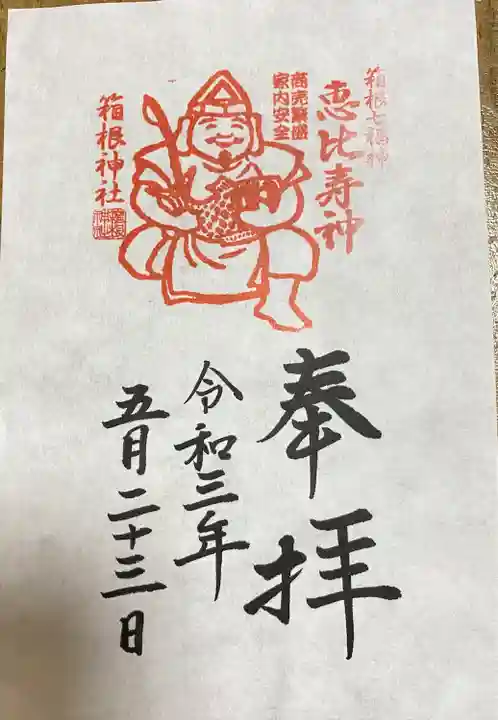 箱根七福神
恵比寿神
商売繁盛
家内安全
箱根神社
奉拝
令和三年
五月二十三日